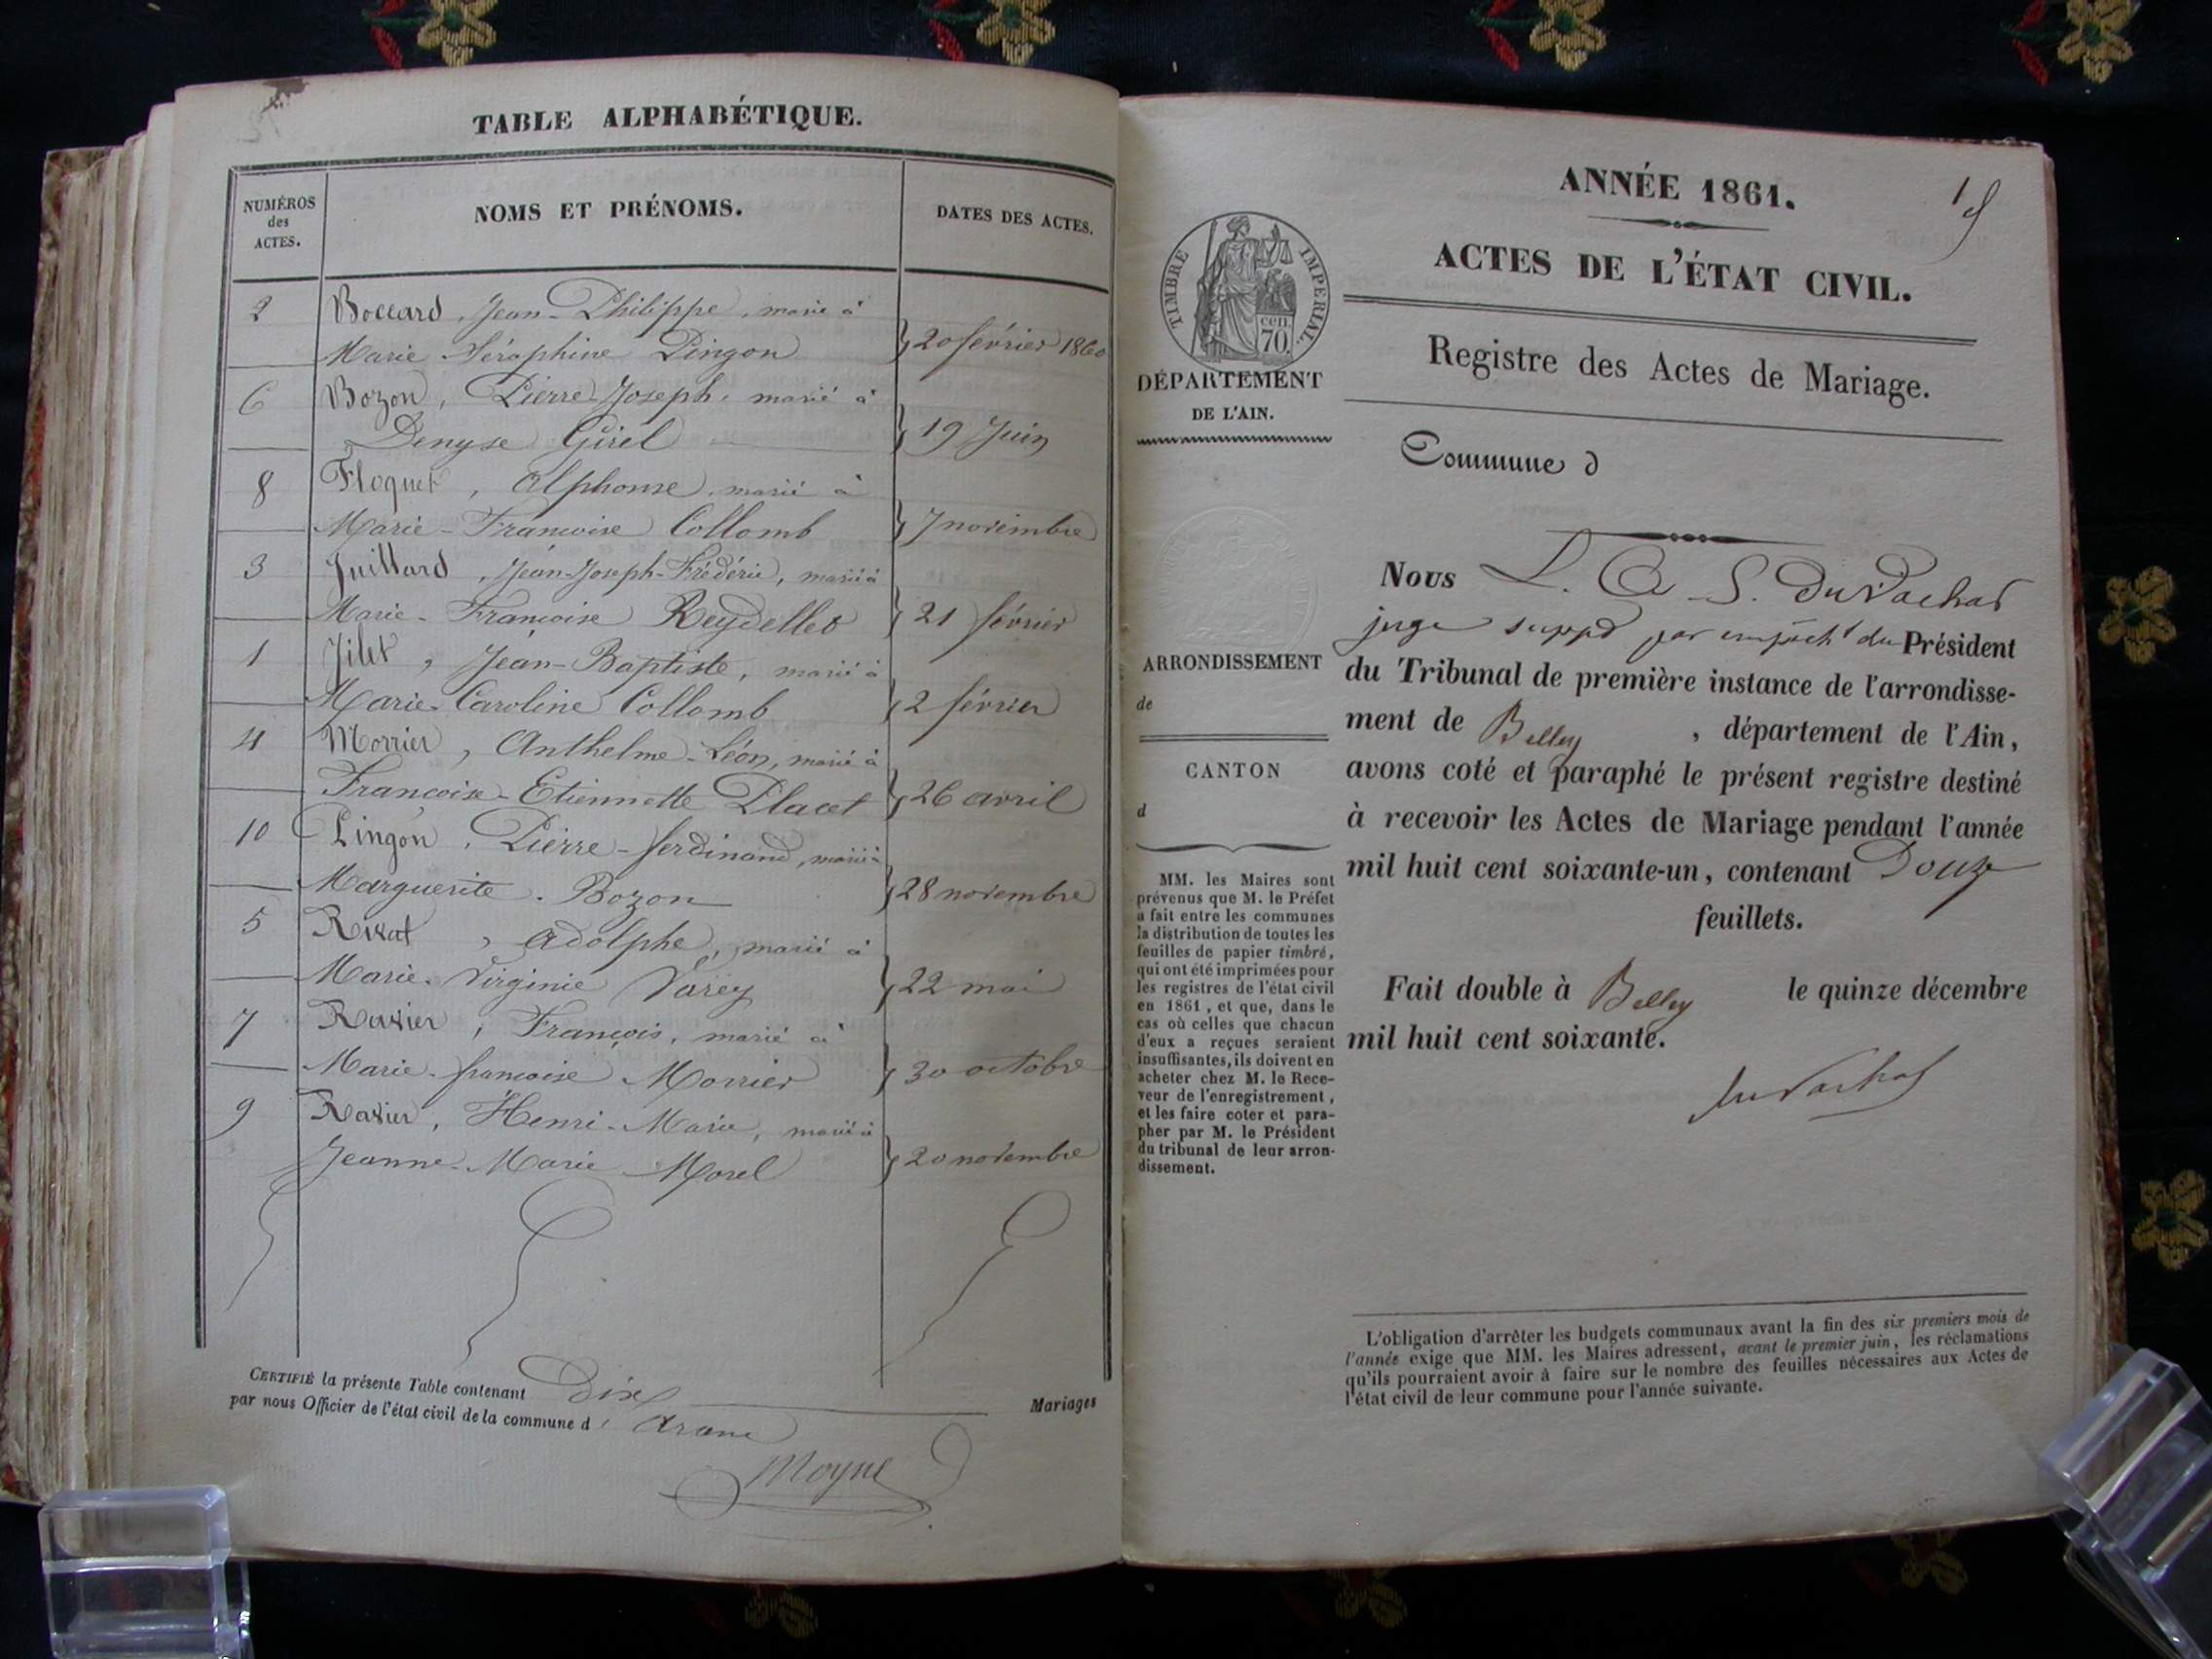 TABLE ALPHABÉTIQUE.
NUMÉROS
des
ACTES.
NOMS ET PRÉNOMS.
DATES DES ACTES.
2 Boccard, Jean-Philippe, marié à
Marie Séraphine Pingon } 20 février 1860
6 Bozon, Pierre-Joseph, marié à
Denyse Girel } 19 Juin
8 Floquet, Alphonse, marié à
Marie-Francoise Collomb } 7 novembre
3 Juillard, Jean-Joseph-Frédéric, marié à
Marie-Francoise Reydellet } 21 février
1 Jilet, Jean-Baptiste, marié à
Marie-Caroline Collomb } 2 février
4 Morrier, Anthelme-Léon, marié à
Francoise-Etiennette Placet } 26 avril
10 Pingon, Pierre-ferdinand, marié à
Marguerite Bozon } 28 novembre
5 Adolphe, marié à
Marie-Virginie Varey } 22 mai
7 Ravier, François, marié à
Marie-françoise Morrier } 30 octobre
9 Ravier, Henri-Marie, marié à
Jeanne-Marie Morel } 20 novembre
CERTIFIÉ la présente Table contenant Dix Mariages
par nous Officier de l'état civil de la commune d'Aranc
Moyne
ANNÉE 1861.
1
ACTES DE L'ÉTAT CIVIL.
Registre des Actes de Mariage.
TIMBRE IMPERIAL.
70.
cen.
DÉPARTEMENT
DE L'AIN.
ARRONDISSEMENT
de
CANTON
d
MM. les Maires sont
prévenus que M. le Préfet
a fait entre les communes
la distribution de toutes les
feuilles de papier timbré,
qui ont été imprimées pour
les registres de l'état civil
en 1861, et que, dans le
cas où celles que chacun
d'eux a reçues seraient
insuffisantes, ils doivent en
acheter chez M. le Rece-
veur de l'enregistrement,
et les faire coter et para-
pher par M. le Président
du tribunal de leur arron-
dissement.
Commune d
Nous L. A. S. Du Vachat
juge suppt par empêcht du Président
du Tribunal de première instance de l'arrondisse-
ment de Belley, département de l'Ain,
avons coté et paraphé le présent registre destiné
à recevoir les Actes de Mariage pendant l'année
mil huit cent soixante-un, contenant Douze
feuillets.
Fait double à Belley le quinze décembre
mil huit cent soixante.
du Vachat
L'obligation d'arrêter les budgets communaux avant la fin des six premiers mois de
l'année exige que MM. les Maires adressent, avant le premier juin, les réclamations
qu'ils pourraient avoir à faire sur le nombre des feuilles nécessaires aux Actes de
l'état civil de leur commune pour l'année suivante.